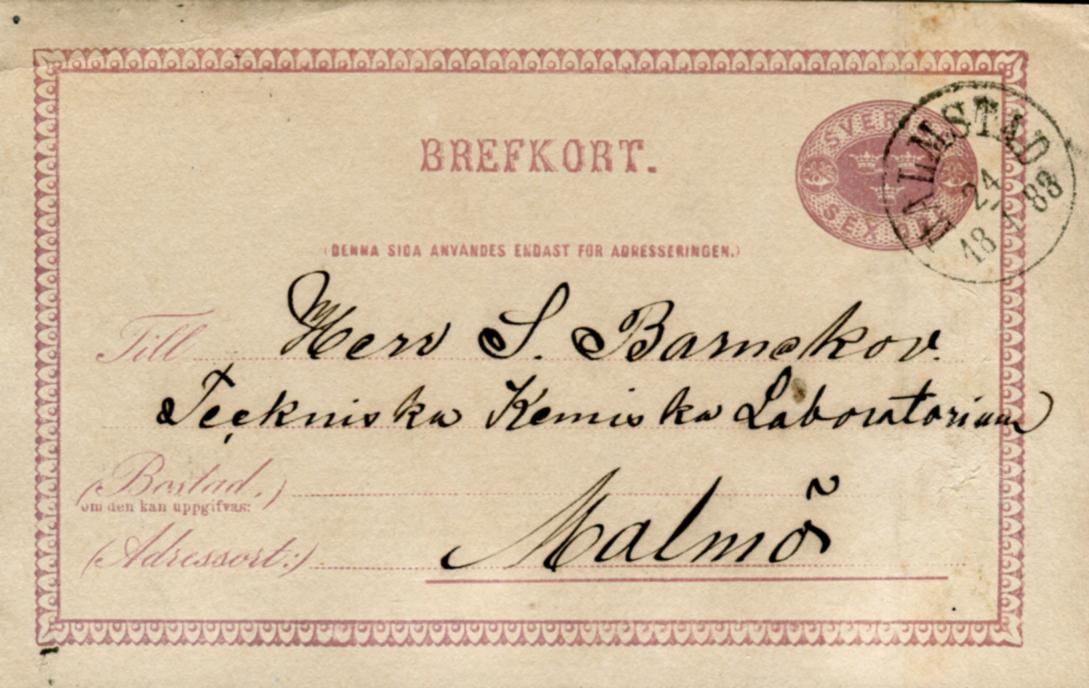 BREFKORT.
SVERIGE
SEX ÖRE
HALMSTAD
24
18 1 88
(DENNA SIDA ANVÄNDES ENDAST FÖR ADRESSERINGEN.)
Till Herr S. Barnekov.
Teckniska Kemiska Laboratorium
(Bostad,)
om den kan uppgifvas:
(Adressort:) Malmö